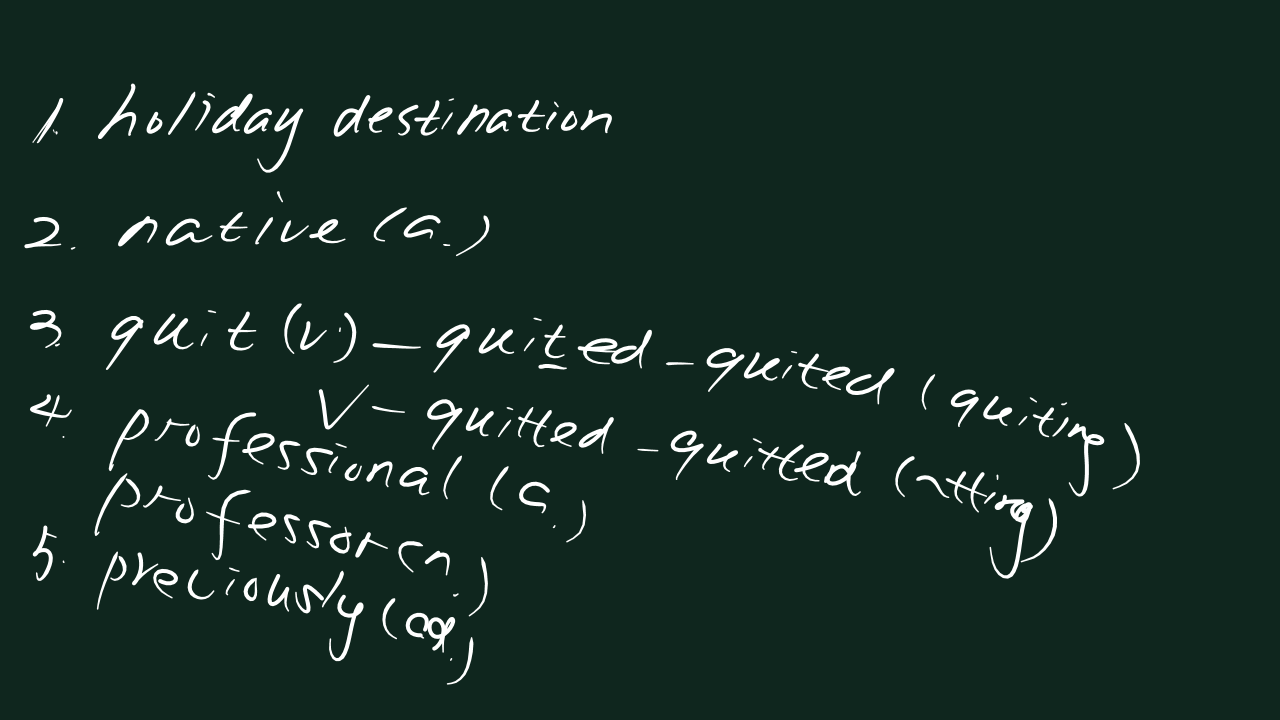 1. holiday destination
2. native (a.)
3. quit (v.) - quited - quited (quiting)
V - quitted - quitted (~tting)
4. professional (a.)
professor (n.)
5. previously (ad.)